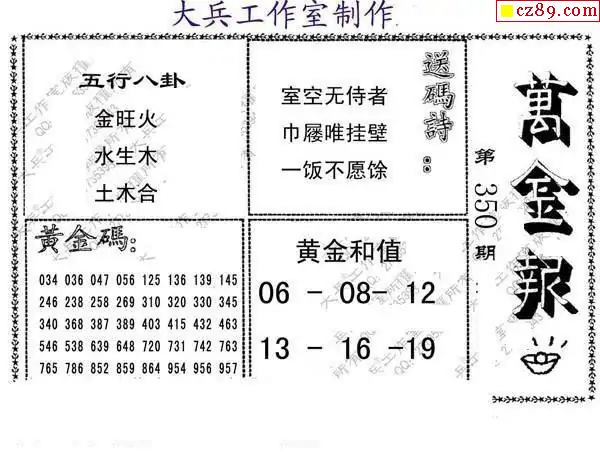 大兵工作室制作
cz89.com
五行八卦
金旺火
水生木
土木合
送碼詩：
室空无侍者
巾屦唯挂壁
一饭不愿馀
萬金报
第350期
黃金碼：
034 036 047 056 125 136 139 145
246 238 258 269 310 320 330 345
340 368 387 389 403 415 432 463
546 538 639 648 720 731 742 763
765 786 852 859 864 954 956 957
黄金和值
06 - 08- 12
13 - 16 -19